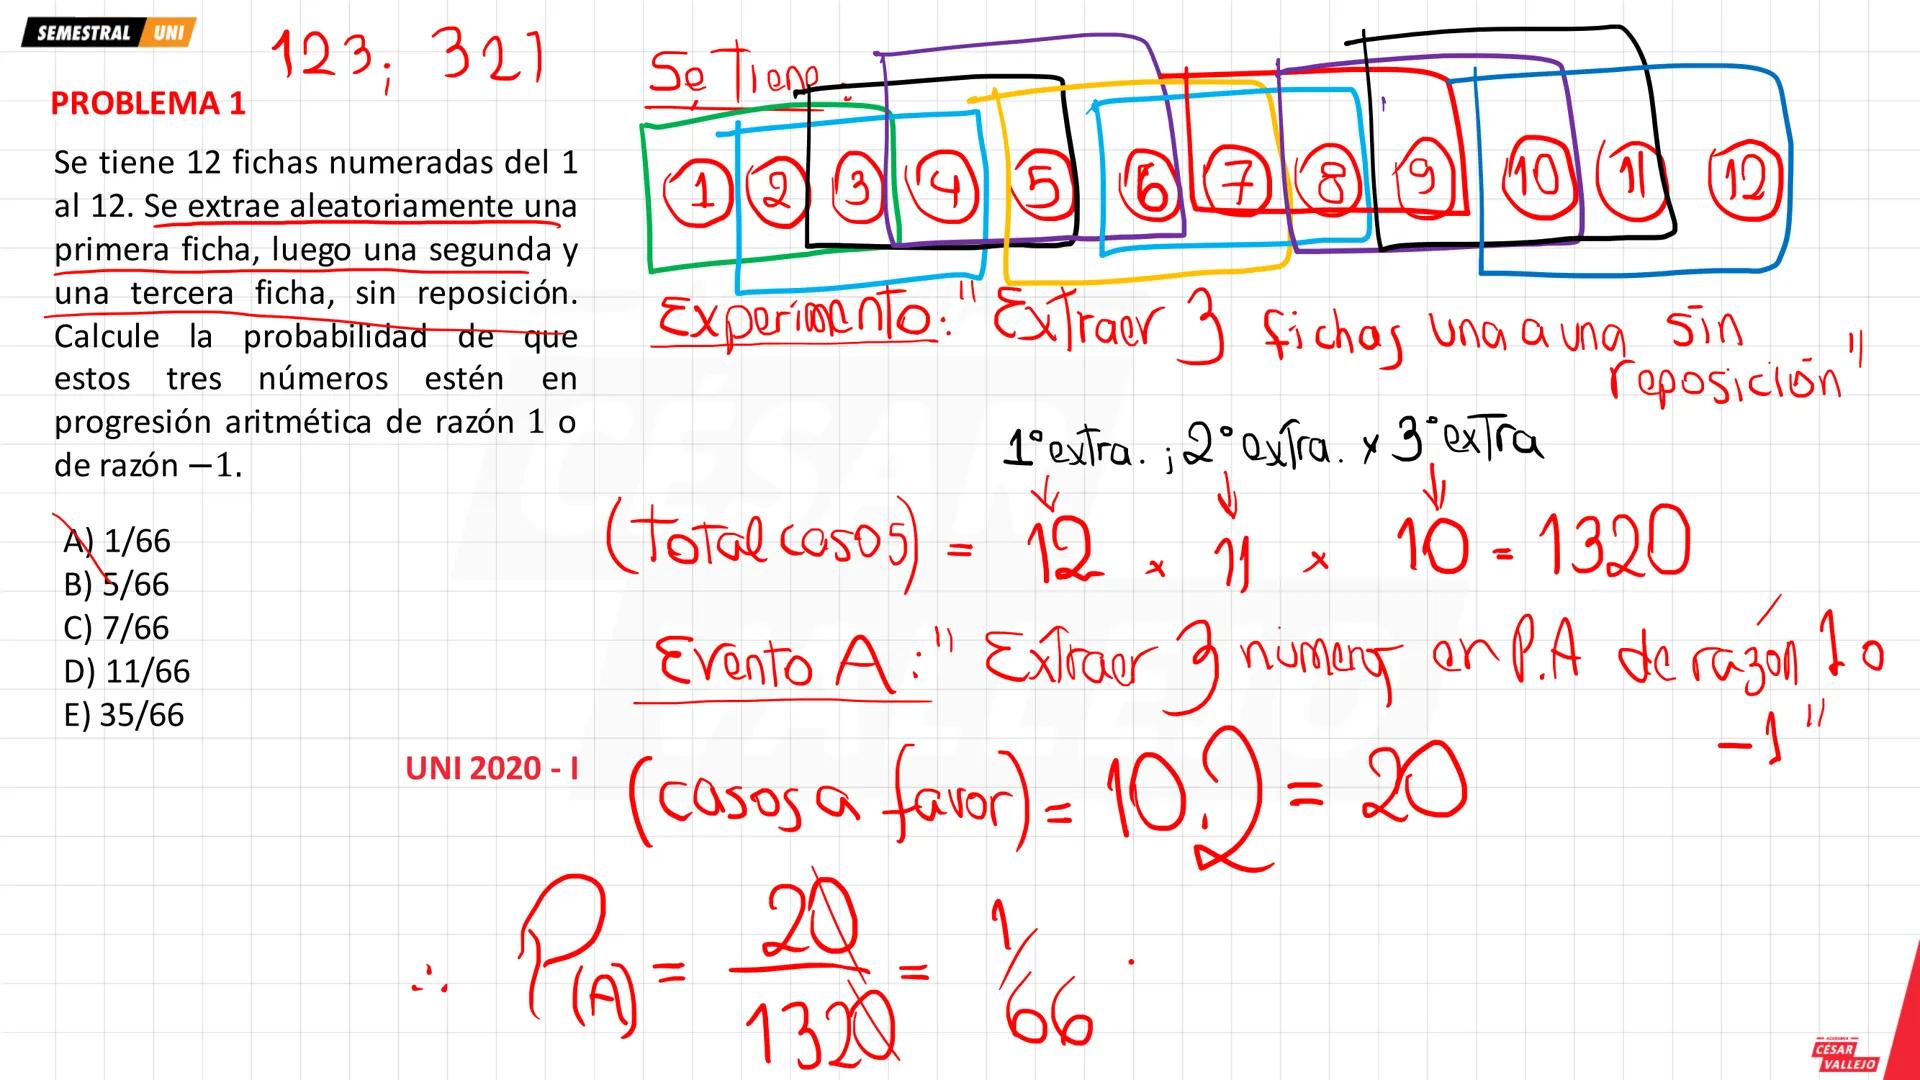 SEMESTRAL UNI
123; 321
PROBLEMA 1
Se tiene 12 fichas numeradas del 1
al 12. Se extrae aleatoriamente una
primera ficha, luego una segunda y
una tercera ficha, sin reposición.
Calcule la probabilidad de que
estos tres números estén en
progresión aritmética de razón 1 o
de razón −1.
A) 1/66
B) 5/66
C) 7/66
D) 11/66
E) 35/66
UNI 2020 - I
Se Tiene:
1 2 3 4 5 6 7 8 9 10 11 12
Experimento: "Extraer 3 fichas una a una sin
reposición"
1° extra. ; 2° extra. x 3° extra
(Total casos) = 12 x 11 x 10 = 1320
Evento A: "Extraer 3 números en P.A de razón 1 o
-1"
(casos a favor) = 10.2 = 20
∴ P(A) = 20/1320 = 1/66.
CÉSAR VALLEJO
ACADEMIA
CÉSAR
VALLEJO